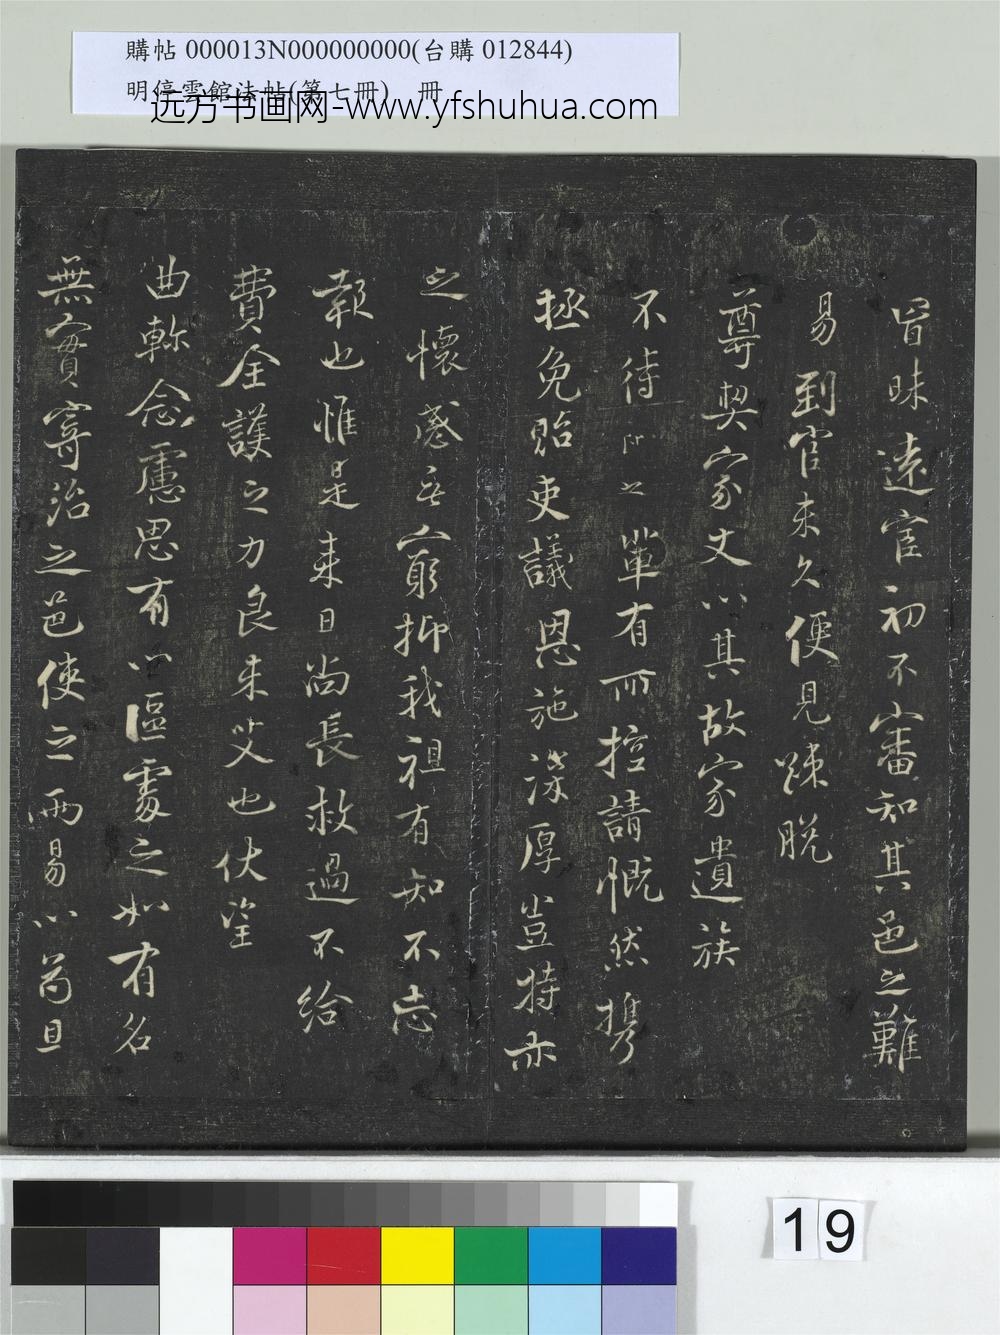 購帖 000013N000000000(台購 012844)
明停雲館法帖(第七冊) 冊
远方书画网-www.yfshuhua.com
冒昧遠宦初不審知其邑之難
易到官未久便見踈脫
尊契家丈以其故家遺族
不待 之輩有所控請慨然携
拯免貽吏議恩施深厚豈特亦
之懷感無窮抑我祖有知不忘
報也惟是来日尚長救過不给
費全護之力良未艾也伏望
曲軫念慮思有以區處之如有名
無實寄治之邑使之两易以苟且
19